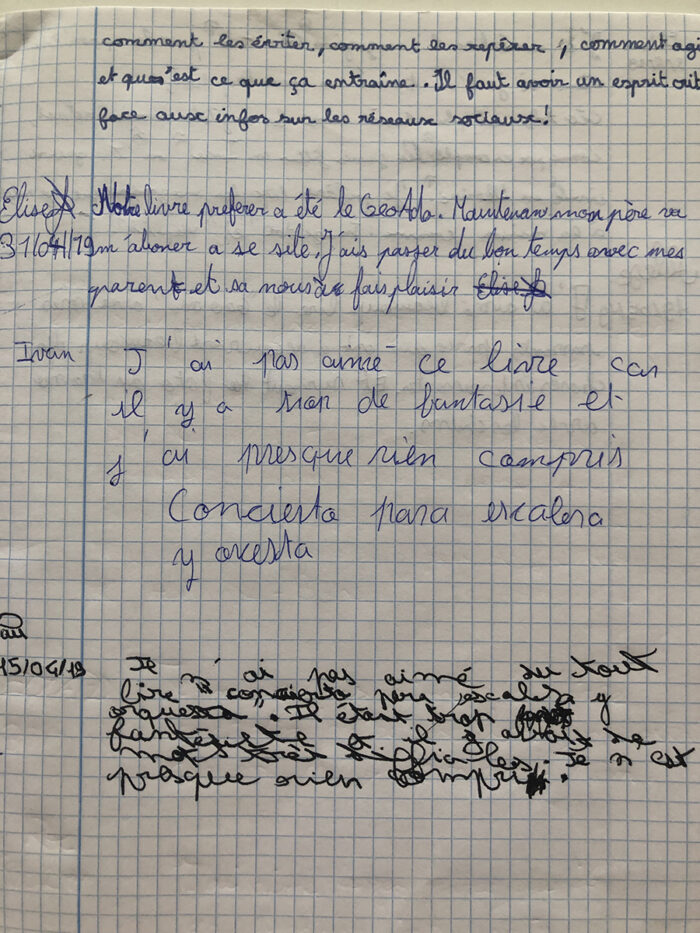 comment les éviter, comment les repérer, comment agi
et ques'est ce que ça entraîne. Il faut avoir un esprit crit
face aux infos sur les réseaux sociaux!
Elise Notre livre preferer a été le GeoAdo. Maintenant mon père va
31/04/19 m'aboner a se site. J'ais passer du bon temps avec mes
parent et sa nous a fais plaisir Elise
Ivan J'ai pas aimé ce livre car
il y a trop de fantasie et
j'ai presque rien compris
Concierto para escalera
y orcesta
15/04/19 Je n'ai pas aimé du tout
lire concierto para escalera y
orquesta. Il était trop
fantésiste et il y avait de
mots très difficiles. Je n'est
presque rien compris.